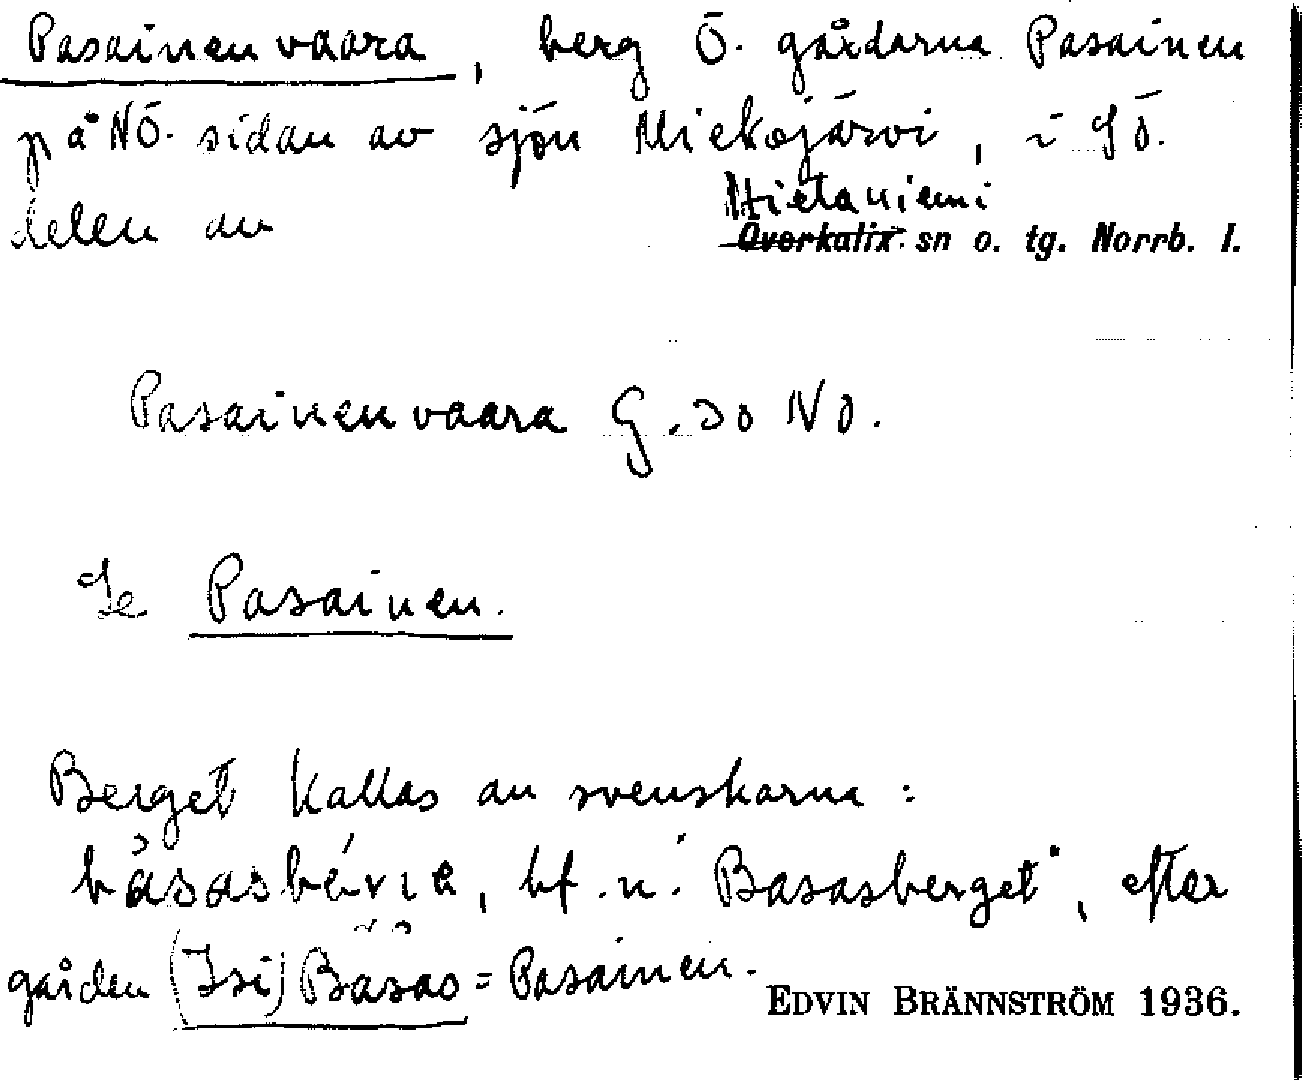 Pasainenvaara, berg Ö. gårdarna Pasainen
på NÖ. sidan av sjön Miekojärvi, i SÖ.
delen av Hietaniemi
Överkalix sn o. tg. Norrb. l.
Pasainenvaara G. So No.
Se Pasainen.
Berget kallas av svenskarna:
bf. n. "Basasberget", efter
gården (Isi) Basas = Pasainen.
EDVIN BRÄNNSTRÖM 1936.